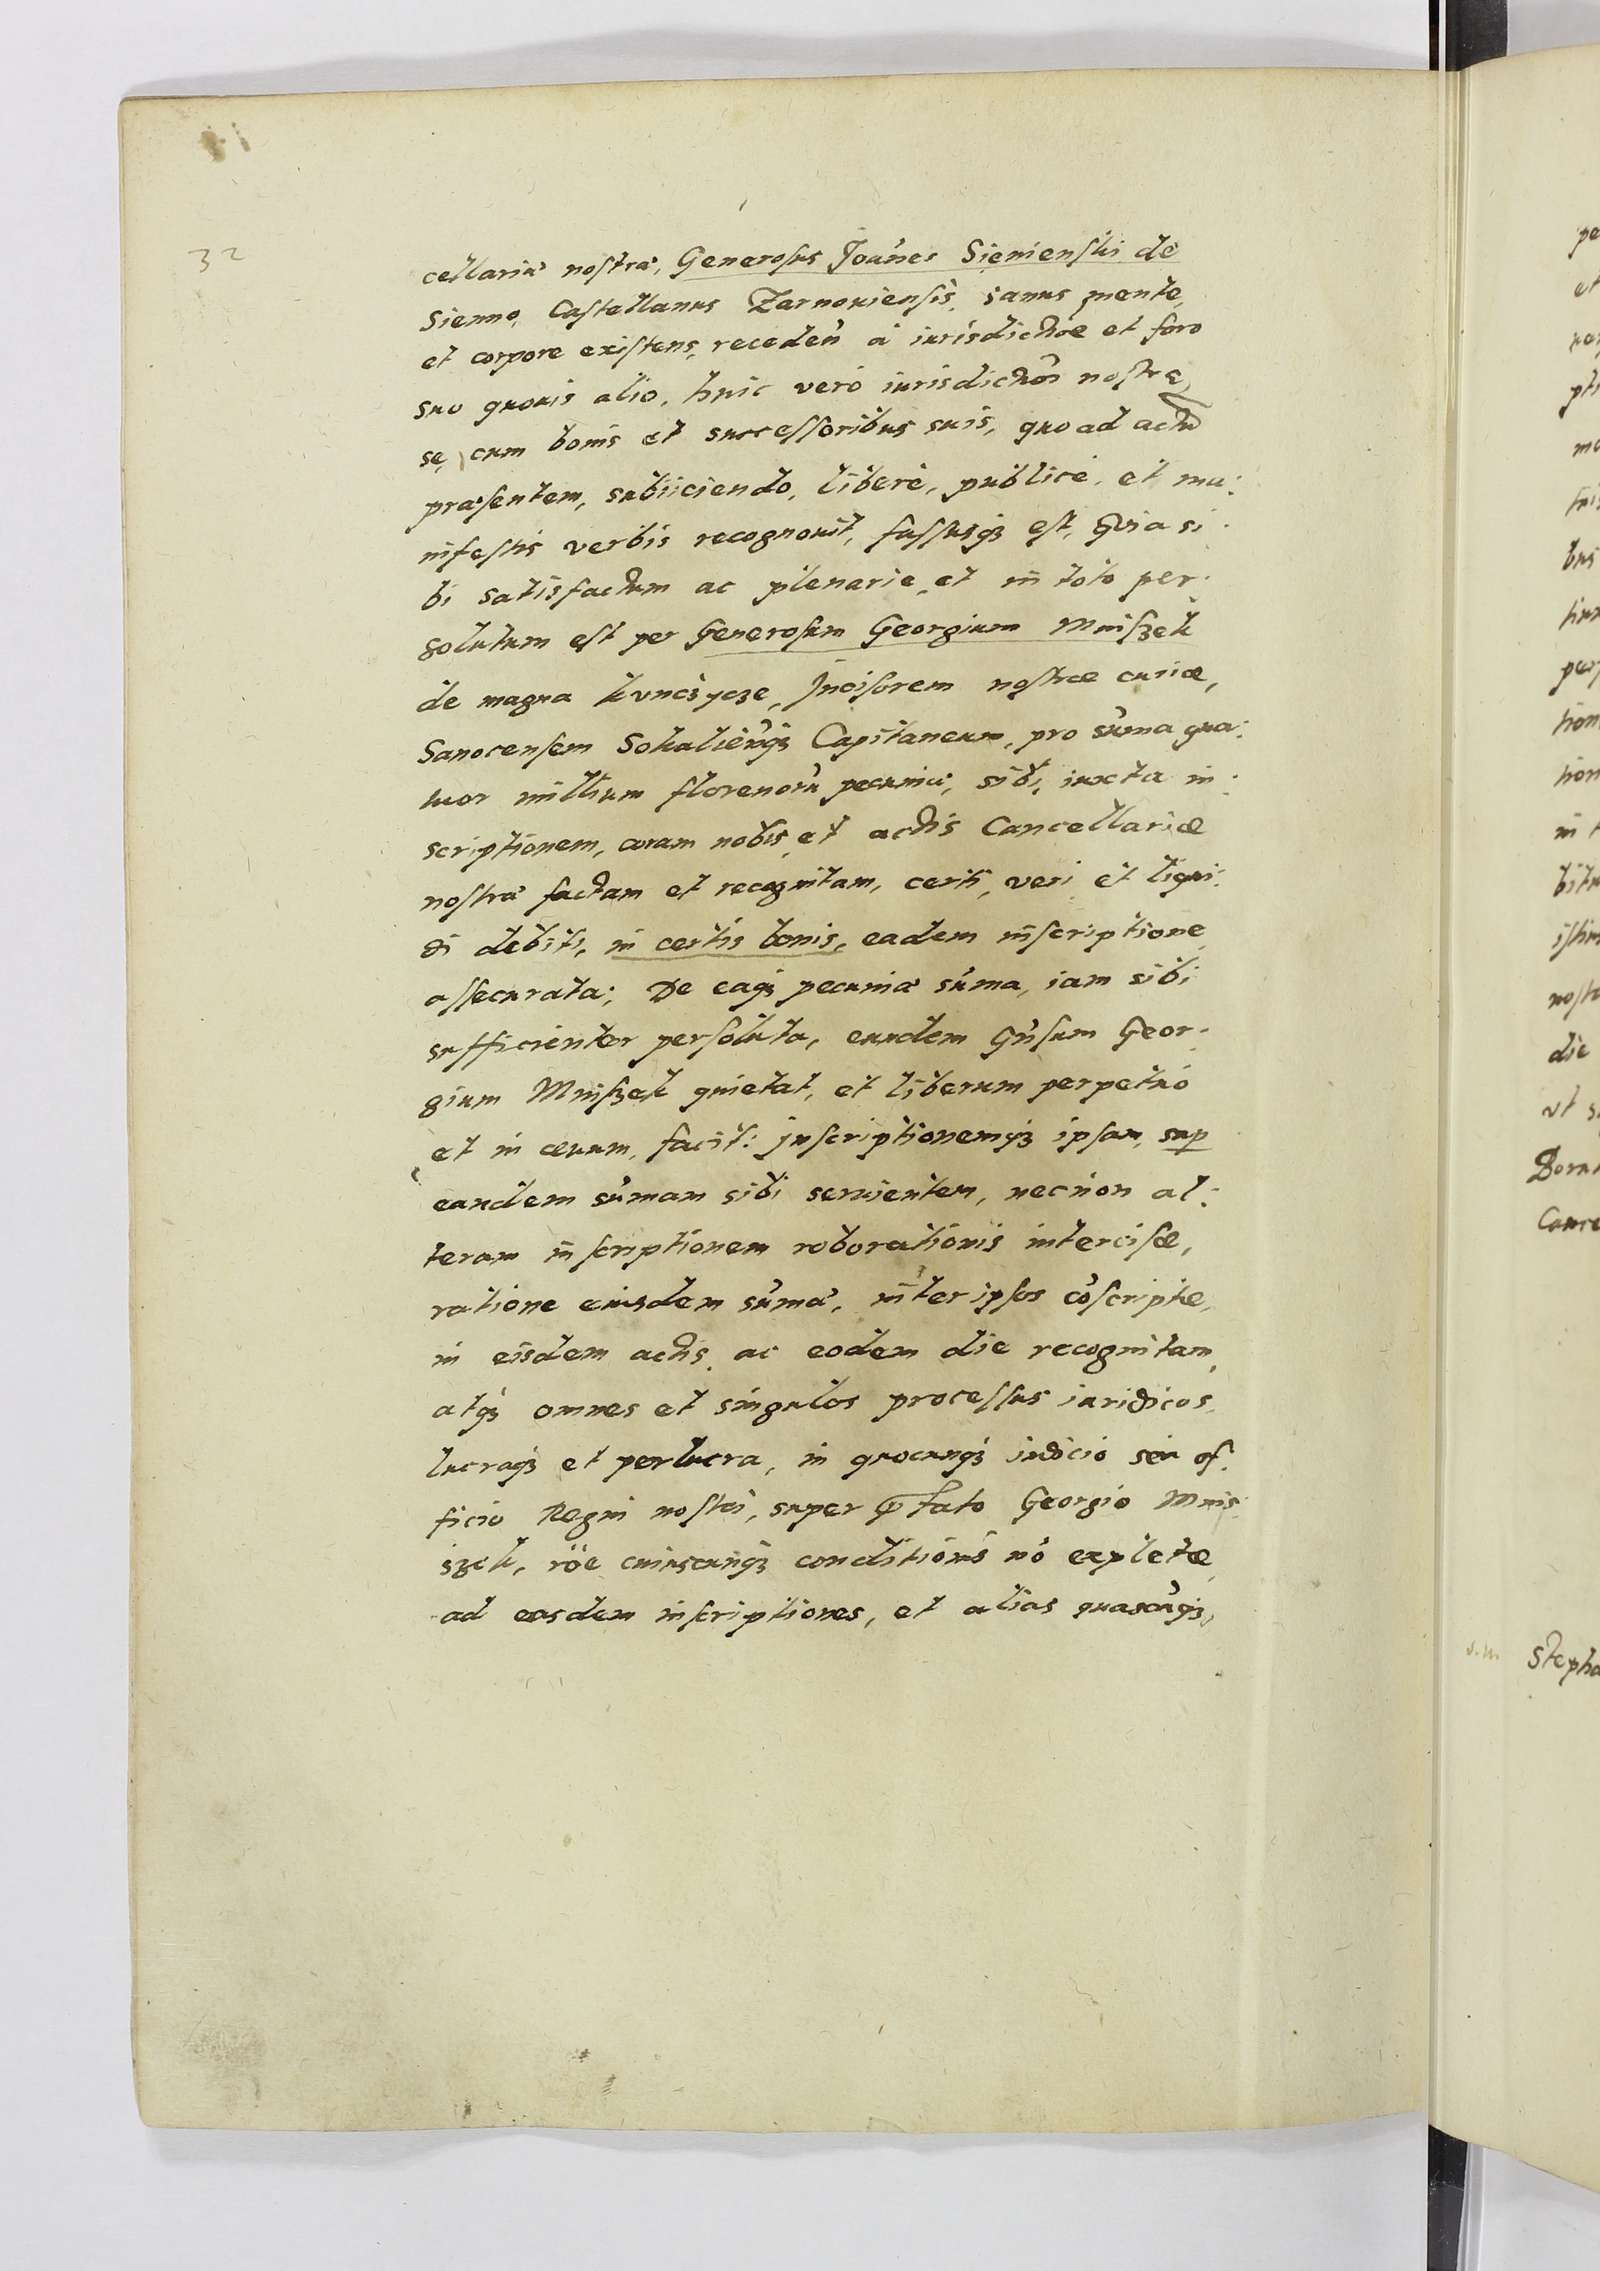 32
cellaria nostra, Generosus Joa͂nes Sienienski de
Sienno, Castellanus Zarnouiensis, sanus mente,
et corpore existens, recedeñ à iurisdictioe et foro
suo quouis alio, huic verò iurisdictioni nostrę,
se, cum bonis et successoribus suis, quo ad actũ
præsentem, subiiciendo, liberè, publicè, et ma:
nifestis verbis recognouit, fassusqȝ est, Quia si:
bi satisfactum ac plenarie, et in toto per:
solutum est per Generosum Georgium Mniszek
de magna kunczycze, Incisorem nostræ curiæ,
Sanocensem Sokalieñqȝ Capitaneum, pro sũma qua:
tuor millium florenorũ pecuniæ, sibi, iuxta in:
scriptionem, coram nobis, et actis Cancellariæ
nostræ factam et recognitam, certi, veri et liqui:
di debiti, in certis bonis, eadem inscriptione
assecurata; De eaqȝ pecuniæ sũma, iam sibi
sufficienter persoluta, eundem Gñsum Geor:
gium Mniszek quietat, et liberum perpetuò
et in æuum, facit: inscriptionemqȝ ipsam, sup
eandem sũmam sibi seruientem, necnon al:
teram inscriptionem roborationis intercisæ,
ratione eiusdem sũmæ, inter ipsos cõscriptæ,
in eisdem actis, ac eodem die recognitam,
atqȝ omnes et singulos processus iuridicos,
lucraqȝ et perlucra, in quocunqȝ iudicio seu of:
ficio Regni nostri, super p͂fato Georgio Mnis:
szek, rõe cuiuscunqȝ conditionis nõ expletæ,
ad easdem inscriptiones, et alias quascũqȝ,
Stepha